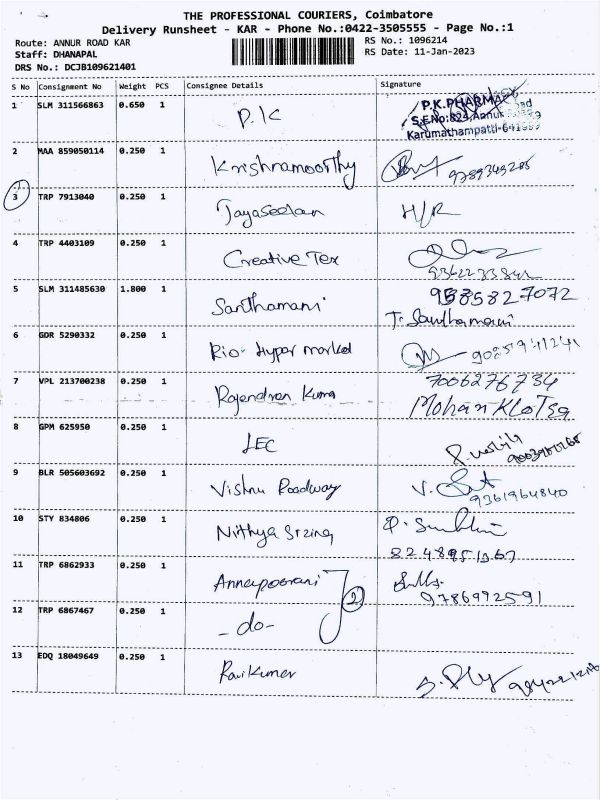 THE PROFESSIONAL COURIERS, Coimbatore
Delivery Runsheet - KAR - Phone No.:0422-3505555 - Page No.:1
Route: ANNUR ROAD KAR
RS No.: 1096214
Staff: DHANAPAL
RS Date: 11-Jan-2023
DRS No.: DCJB109621401
S No Consignment No Weight PCS Consignee Details Signature
1 SLM 311566863 0.650 1 P.K P.K.PHARMA
S.F.No:824, Annur
Karumathampatti-641
2 MAA 859050114 0.250 1 Krishnamoorthy 9789349205
3 TRP 7913040 0.250 1 Jayaseelan H/R
4 TRP 4403109 0.250 1 Creative Tex
5 SLM 311485630 1.800 1 Santhamani 9585827072
T. Santhamani
6 GDR 5290332 0.250 1 Rio- Hyper market
7 VPL 213700238 0.250 1 Rajendran Kuma 7006276734
Mohan
8 GPM 625950 0.250 1 LEC
9 BLR 505603692 0.250 1 Vishnu Roadway V.
9361964840
10 STY 834806 0.250 1 Nithya Sizing
11 TRP 6862933 0.250 1 Annapoorani 2
9786992591
12 TRP 6867467 0.250 1 - do -
13 EDQ 18049649 0.250 1 Ravikumar